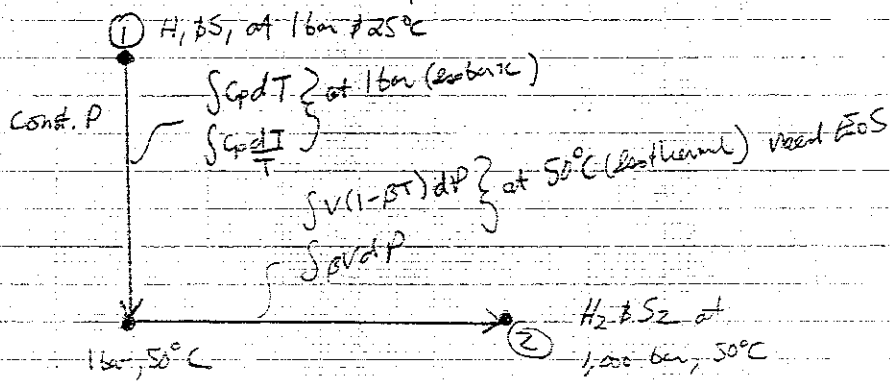 ① H, & S, at 1 bar & 25°C
Const. P
∫CpdT } at 1 bar (isobaric)
∫Cp dT/T
∫V(1-βT)dP } at 50°C (isothermal) need EoS
∫βVdP
1 bar, 50°C
② H2 & S2 at
1,000 bar, 50°C